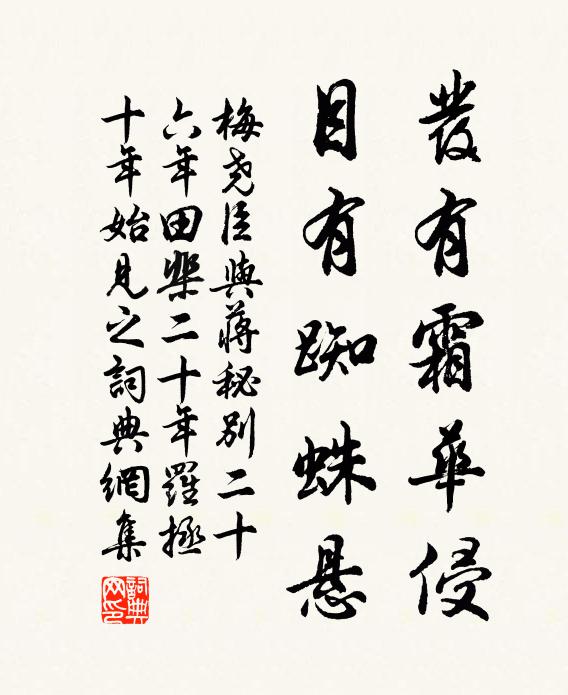 發有霜華侵
目有蜘蛛悬
梅堯臣與蔣秘別二十
六年田棐二十年羅拯
十年始見之詞典網集
詞典
网印